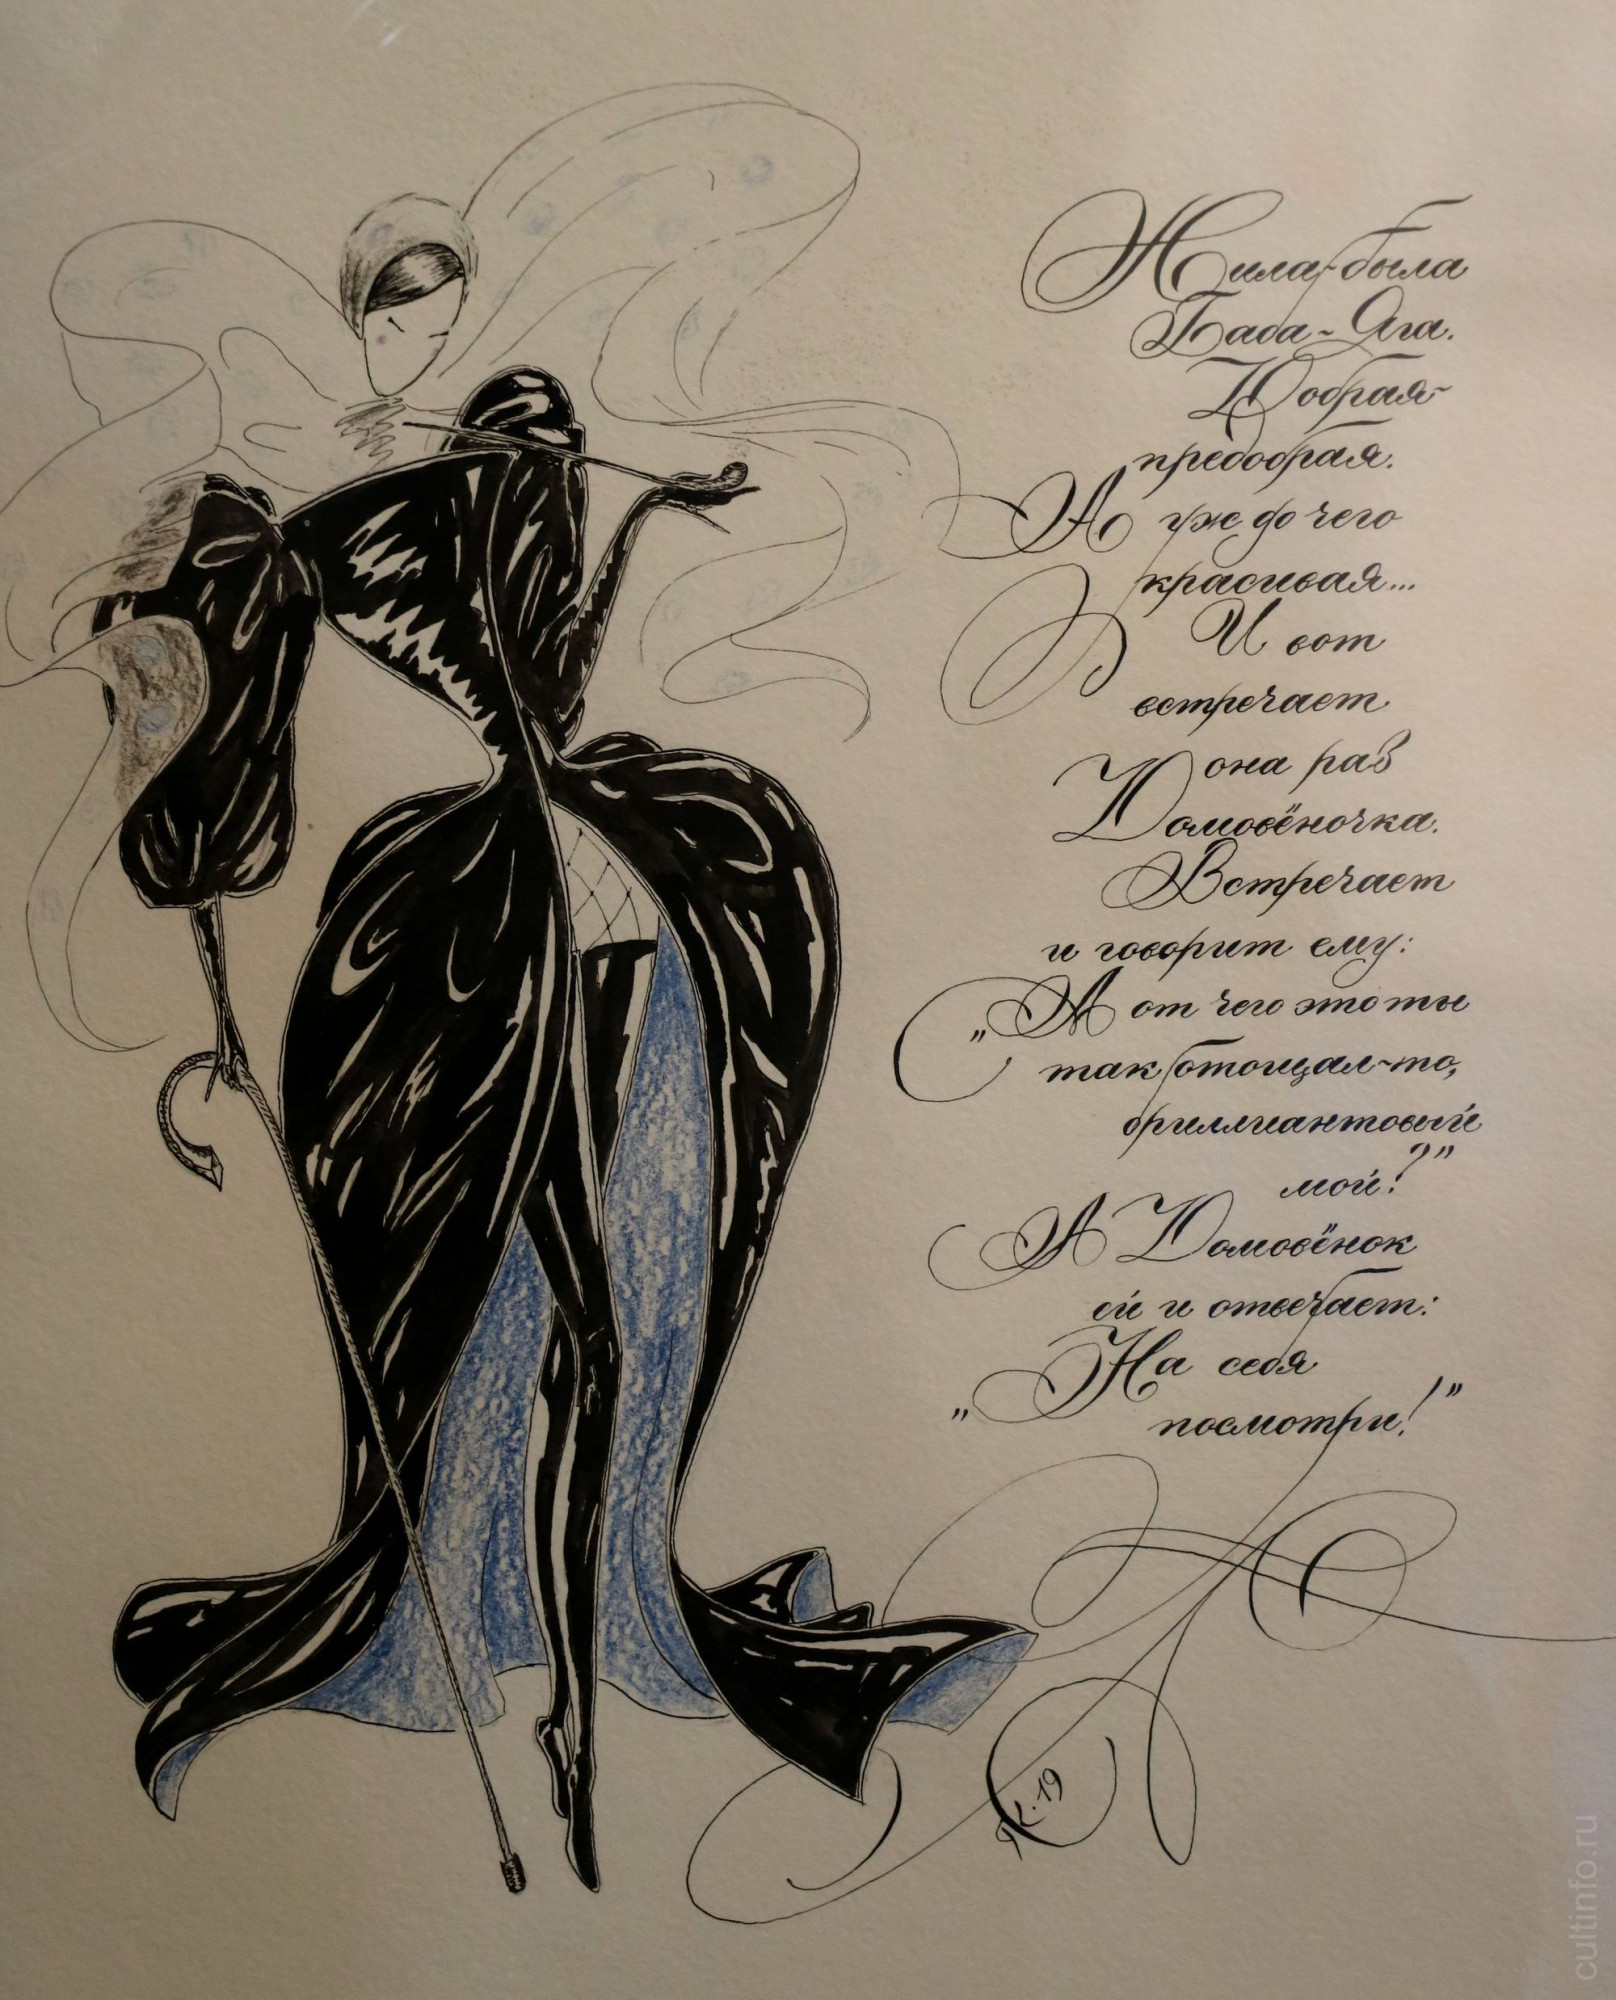 Жила-была
Баба-Яга.
Добрая-
предобрая.
А уж до чего
красивая...
И вот
встречает
она раз
Домовёночка.
Встречает
и говорит ему:
„А от чего это ты
так отощал-то,
бриллиантовый
мой?”
А Домовёнок
ей и отвечает:
„На себя
посмотри!”
К.19
cultinfo.ru